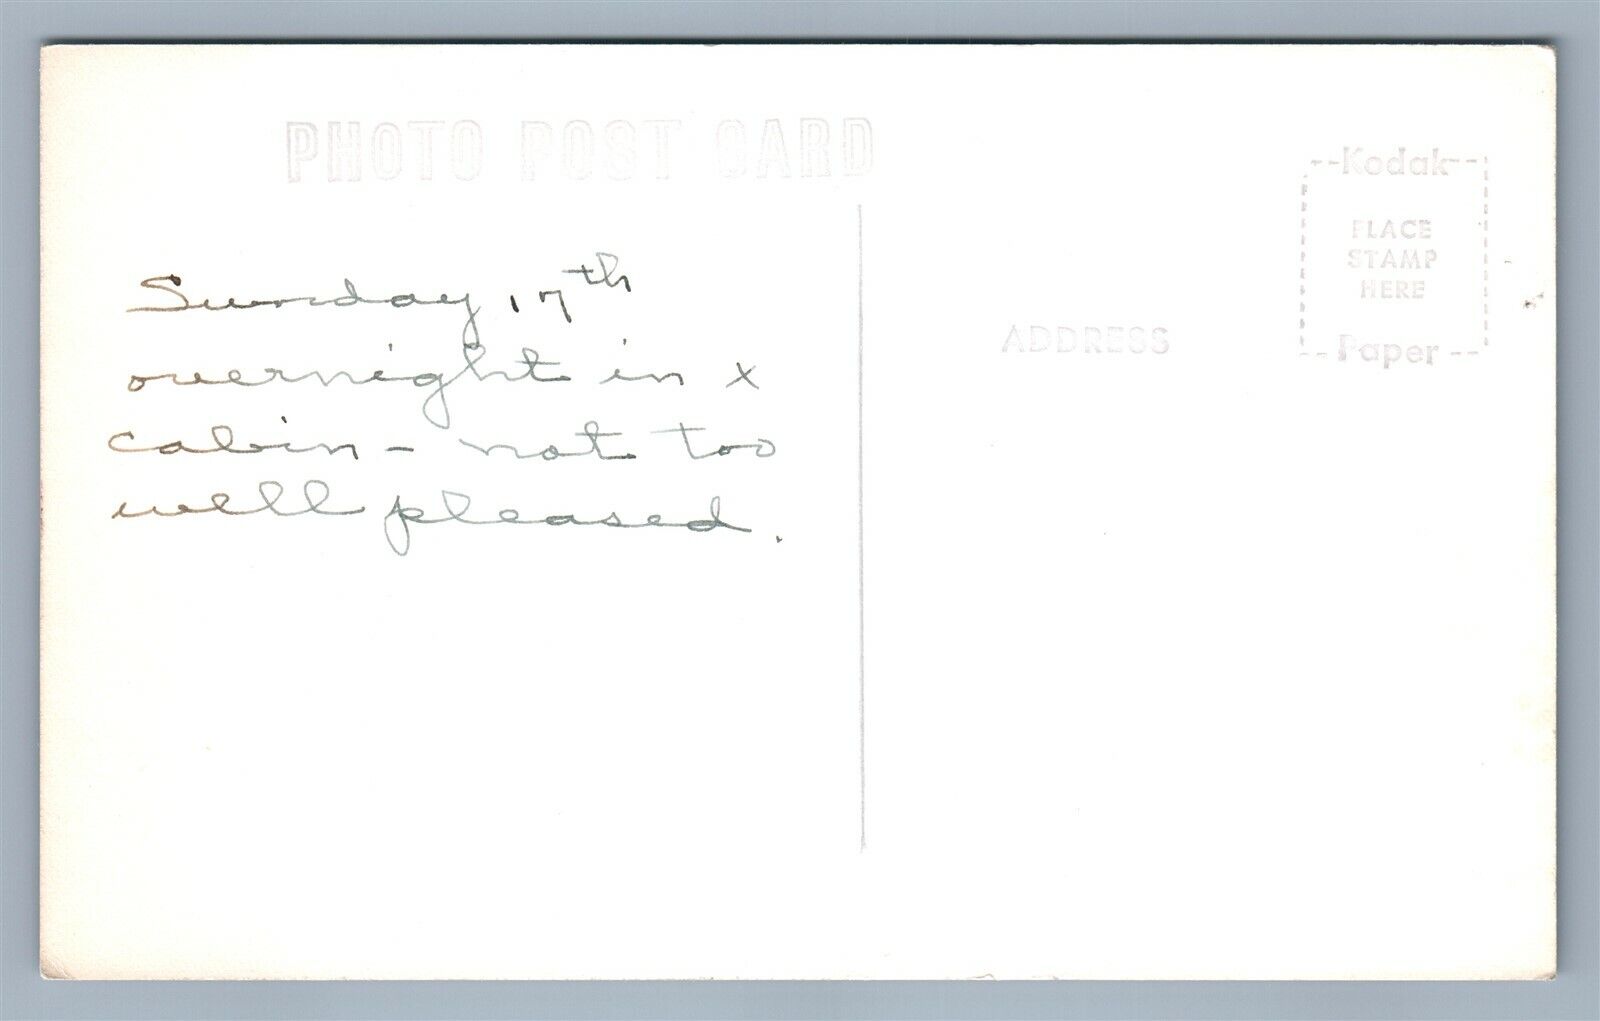 PHOTO POST CARD
Sunday 17th
overnight in x
cabin - not too
well pleased.
ADDRESS
Kodak
PLACE
STAMP
HERE
Paper